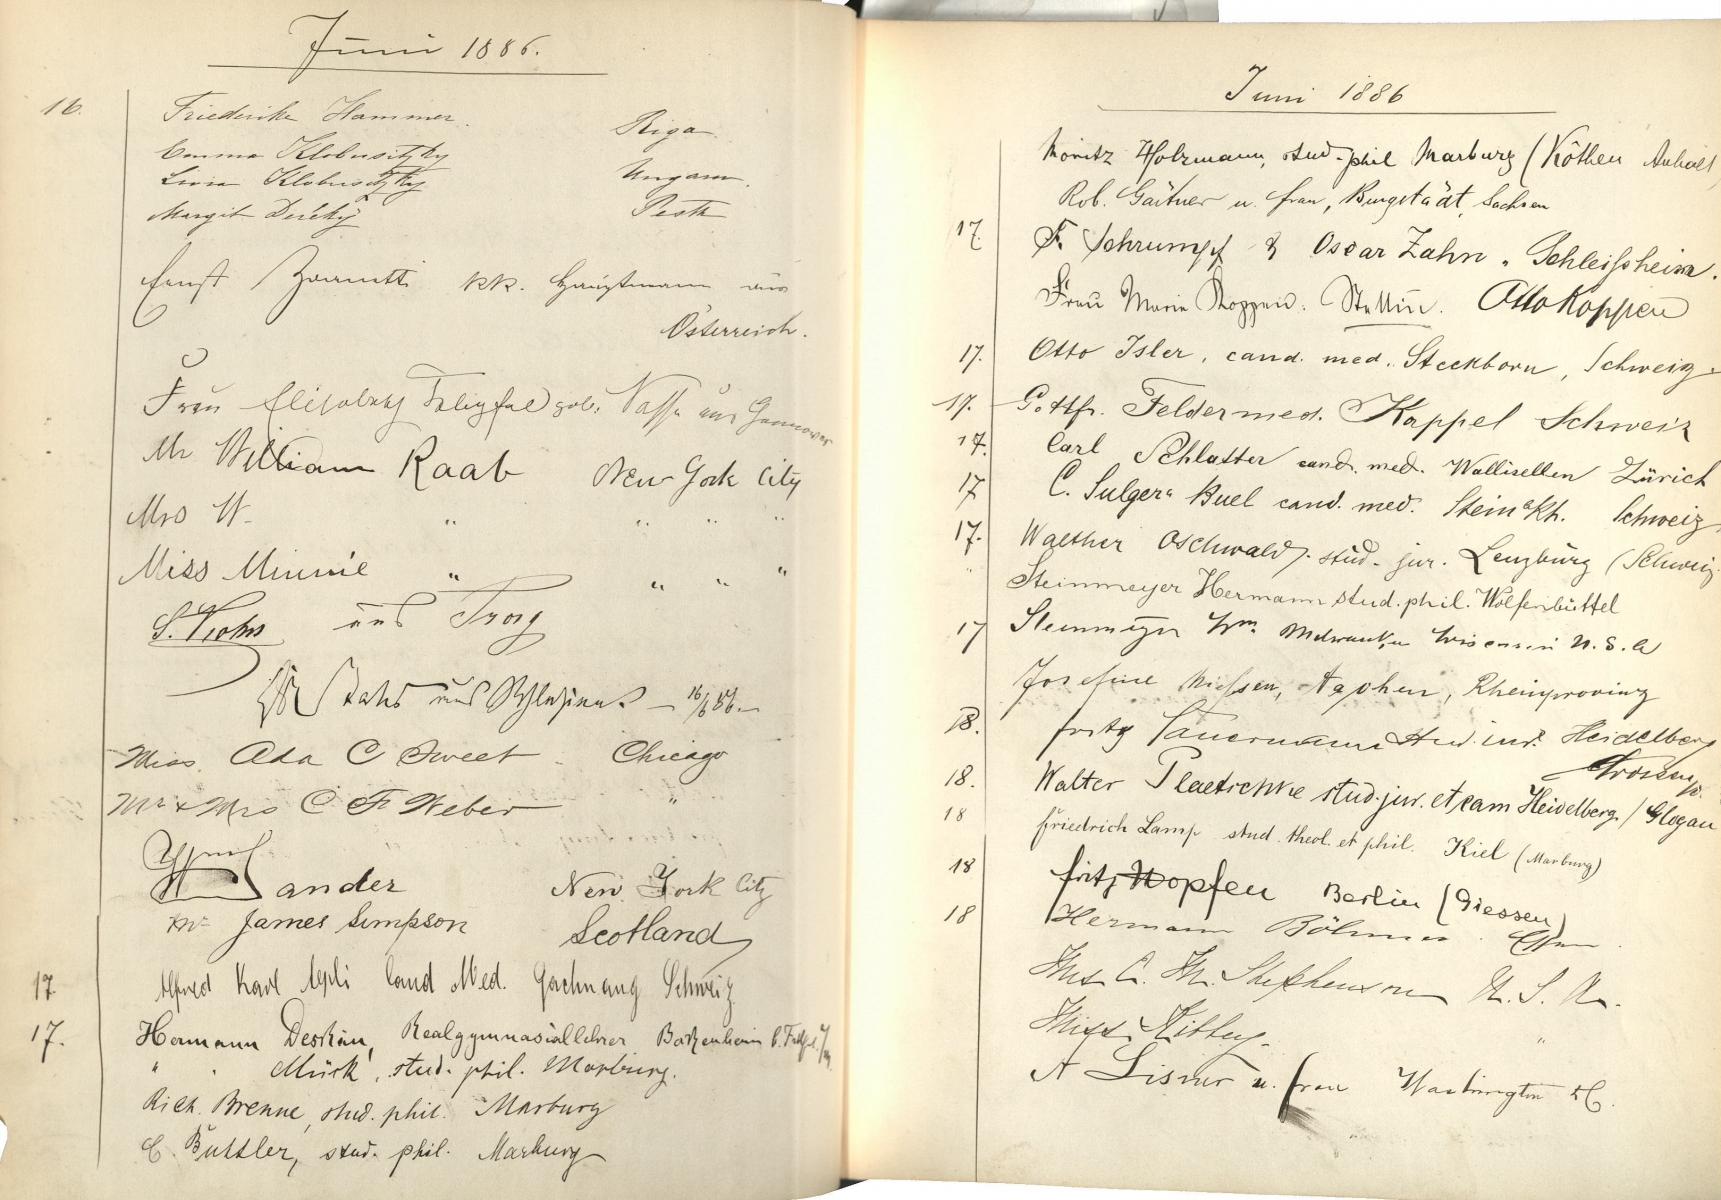 Juni 1886.
16.
Friederike Hammer. Riga.
Emma Klobusitzky
Livia Klobusitzky Ungarn.
Margit Deréky Pesth
Ernst kk. Hauptmann aus
Österreich.
Frau Elisabeth geb. Nasse aus Hannover
Mr William Raab New York City
Mrs W. " " " "
Miss Minnie " " " "
S. Krohn aus
und 16/6 86.
Miss Ada C Sweet - Chicago
Mr & Mrs C F Weber "
ander New York City
Mr James Simpson Scotland
17 Alfred Karl Aepli Cand Med. Gachnang Schweiz
17. Hermann Realgymnasiallehrer Bockenheim b.
" " Mürk, stud. phil. Marburg.
Rich. Brenne, stud. phil. Marburg
C. Buttler, stud. phil. Marburg
Juni 1886
Moritz Holzmann, stud. phil Marburg (Köthen Anhalt)
Rob. Gärtner u. Frau, Burgstädt, Sachsen
17. F. Schrumpf & Oscar Zahn, Schleissheim.
Frau Marie Koppen. Stettin. Otto Koppen
17. Otto Isler, cand. med. Steckborn, Schweiz.
17. Gottfr. Felder med. Kappel Schweiz
17. Carl Schlatter cand. med. Wallisellen Zürich
17 C. Sulger Buel cand. med. Stein a Rh. Schweiz.
17. Walther Oschwald, stud. jur. Lenzburg (Schweiz
" Steinmeyer Hermann stud. phil. Wolfenbüttel
17 Steinmeyer Wm. Milwaukee Wisconsin U. S. A
Josefine Niessen, Aachen, Rheinprovinz
18. Fritz Sauermann stud. iur. Heidelberg
18. Walter Plaetschke stud. jur. et cam Heidelberg / Glogau
18 Friedrich Lamp stud. theol. et phil. Kiel (Marburg)
18 Fritz Hopfen Berlin (Giessen)
18 Hermann Böhmer. Essen.
Mrs C. M. Stephenson U. S. A.
Miss "
A Lisner u. Frau Washington DC.